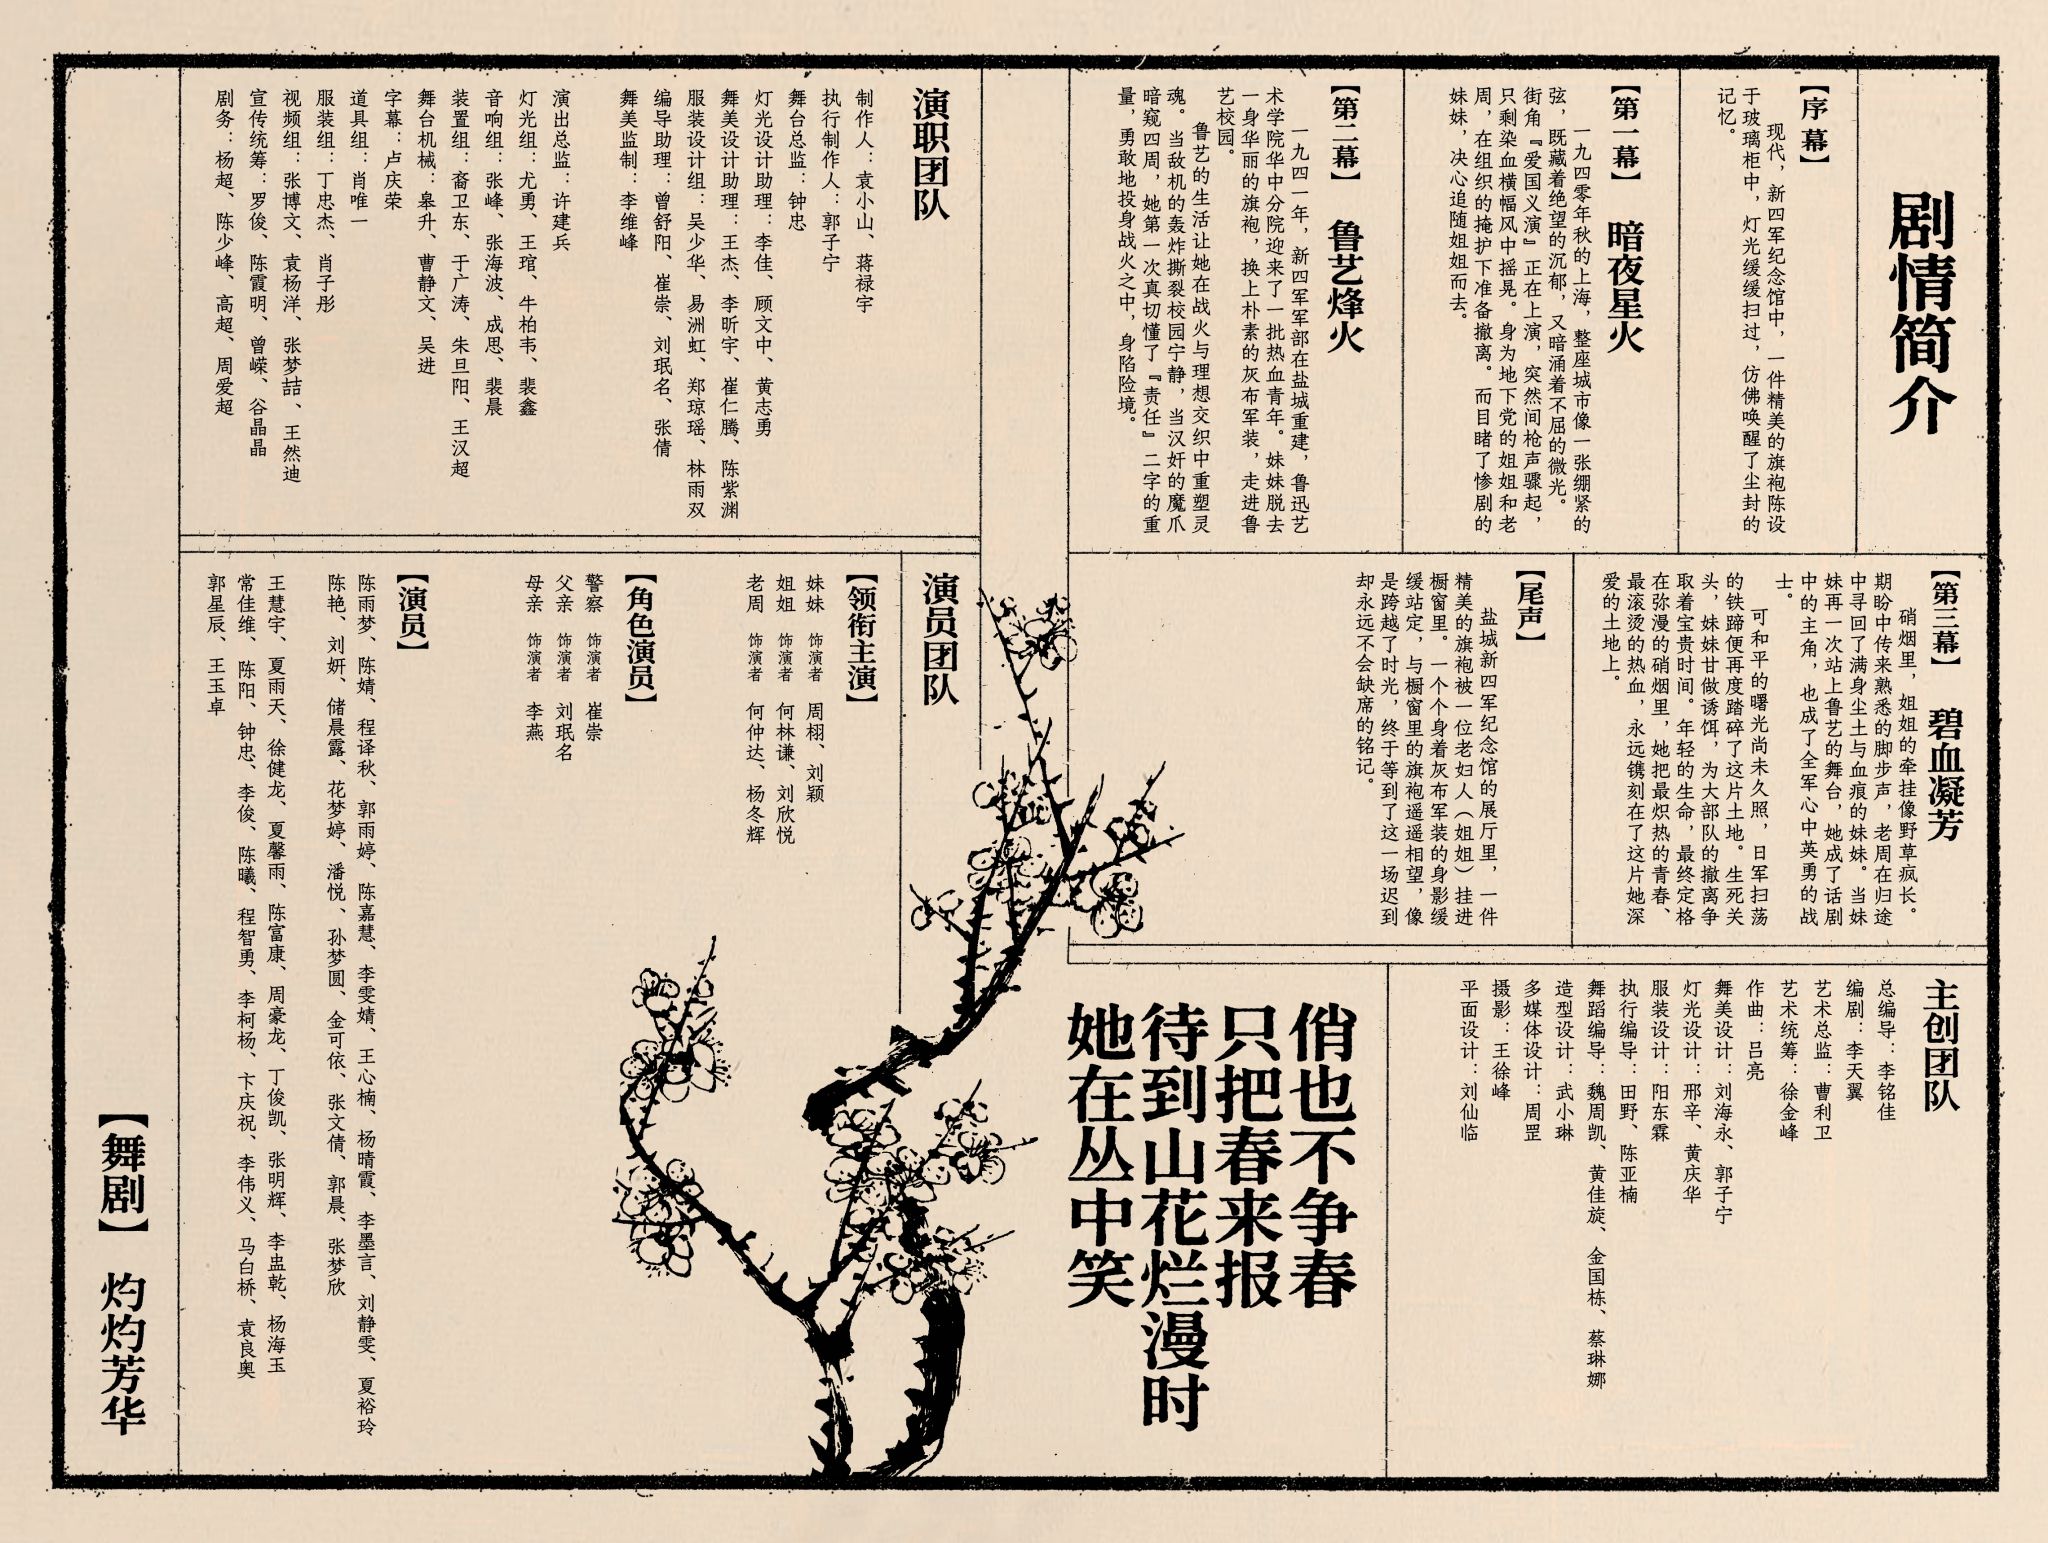 剧情简介
【序幕】
现代，新四军纪念馆中，一件精美的旗袍陈设
于玻璃柜中，灯光缓缓扫过，仿佛唤醒了尘封的
记忆。
【第一幕】 暗夜星火
一九四零年秋的上海，整座城市像一张绷紧的
弦，既藏着绝望的沉郁，又暗涌着不屈的微光。
街角『爱国义演』正在上演，突然间枪声骤起，
只剩染血横幅风中摇晃。身为地下党的姐姐和老
周，在组织的掩护下准备撤离。而目睹了惨剧的
妹妹，决心追随姐姐而去。
【第二幕】 鲁艺烽火
一九四一年，新四军军部在盐城重建，鲁迅艺
术学院华中分院迎来了一批热血青年。妹妹脱去
一身华丽的旗袍，换上朴素的灰布军装，走进鲁
艺校园。
鲁艺的生活让她在战火与理想交织中重塑灵
魂。当敌机的轰炸撕裂校园宁静，当汉奸的魔爪
暗窥四周，她第一次真切懂了『责任』二字的重
量，勇敢地投身战火之中，身陷险境。
【第三幕】 碧血凝芳
硝烟里，姐姐的牵挂像野草疯长。
期盼中传来熟悉的脚步声，老周在归途
中寻回了满身尘土与血痕的妹妹。当妹
妹再一次站上鲁艺的舞台，她成了话剧
中的主角，也成了全军心中英勇的战
士。
可和平的曙光尚未久照，日军扫荡
的铁蹄便再度踏碎了这片土地。生死关
头，妹妹甘做诱饵，为大部队的撤离争
取着宝贵时间。年轻的生命，最终定格
在弥漫的硝烟里，她把最炽热的青春、
最滚烫的热血，永远镌刻在了这片她深
爱的土地上。
【尾声】
盐城新四军纪念馆的展厅里，一件
精美的旗袍被一位老妇人（姐姐）挂进
橱窗里。一个个身着灰布军装的身影缓
缓站定，与橱窗里的旗袍遥遥相望，像
是跨越了时光，终于等到了这一场迟到
却永远不会缺席的铭记。
主创团队
总编导：李铭佳
编剧：李天翼
艺术总监：曹利卫
艺术统筹：徐金峰
作曲：吕亮
舞美设计：刘海永、郭子宁
灯光设计：邢辛、黄庆华
服装设计：阳东霖
执行编导：田野、陈亚楠
舞蹈编导：魏周凯、黄佳旋、金国栋、蔡琳娜
造型设计：武小琳
多媒体设计：周罡
摄影：王徐峰
平面设计：刘仙临
俏也不争春
只把春来报
待到山花烂漫时
她在丛中笑
演职团队
制作人：袁小山、蒋禄宇
执行制作人：郭子宁
舞台总监：钟忠
灯光设计助理：李佳、顾文中、黄志勇
舞美设计助理：王杰、李昕宇、崔仁腾、陈紫渊
服装设计组：吴少华、易洲虹、郑琼瑶、林雨双
编导助理：曾舒阳、崔崇、刘珉名、张倩
舞美监制：李维峰
演出总监：许建兵
灯光组：尤勇、王琯、牛柏韦、裴鑫
音响组：张峰、张海波、成思、裴晨
装置组：裔卫东、于广涛、朱旦阳、王汉超
舞台机械：皋升、曹静文、吴进
字幕：卢庆荣
道具组：肖唯一
服装组：丁忠杰、肖子彤
视频组：张博文、袁杨洋、张梦喆、王然迪
宣传统筹：罗俊、陈霞明、曾嵘、谷晶晶
剧务：杨超、陈少峰、高超、周爱超
演员团队
【领衔主演】
妹妹 饰演者 周栩、刘颖
姐姐 饰演者 何林谦、刘欣悦
老周 饰演者 何仲达、杨冬辉
【角色演员】
警察 饰演者 崔崇
父亲 饰演者 刘珉名
母亲 饰演者 李燕
【演员】
陈雨梦、陈婧、程译秋、郭雨婷、陈嘉慧、李雯婧、王心楠、杨晴霞、李墨言、刘静雯、夏裕玲
陈艳、刘妍、储晨露、花梦婷、潘悦、孙梦圆、金可依、张文倩、郭晨、张梦欣
王慧宇、夏雨天、徐健龙、夏馨雨、陈富康、周豪龙、丁俊凯、张明辉、李蛊乾、杨海玉
常佳维、陈阳、钟忠、李俊、陈曦、程智勇、李柯杨、卞庆祝、李伟义、马白桥、袁良奥
郭星辰、王玉卓
【舞剧】 灼灼芳华